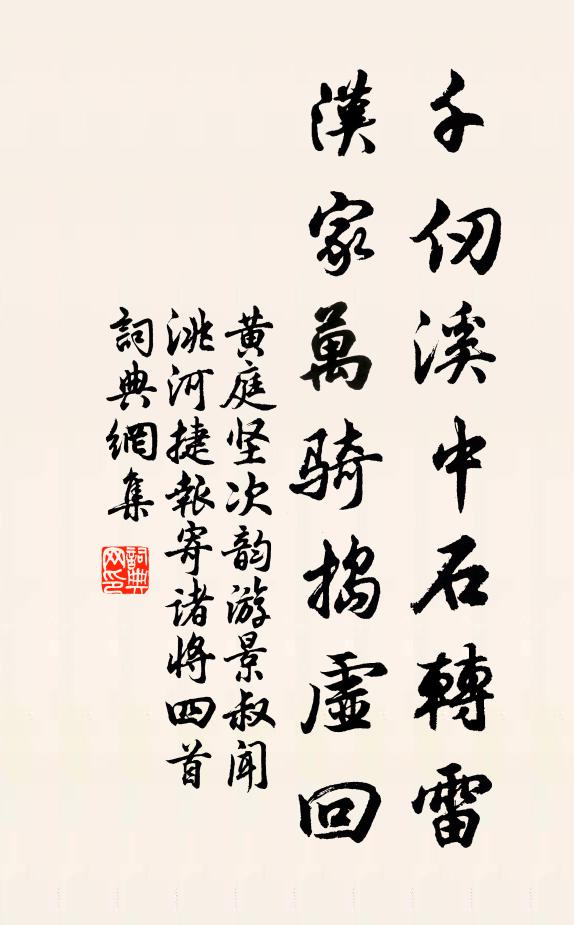 千仞溪中石轉雷
漢家萬騎搗虛回
黄庭坚次韵游景叔闻
洮河捷報寄诸将四首
詞典網集
詞典网印